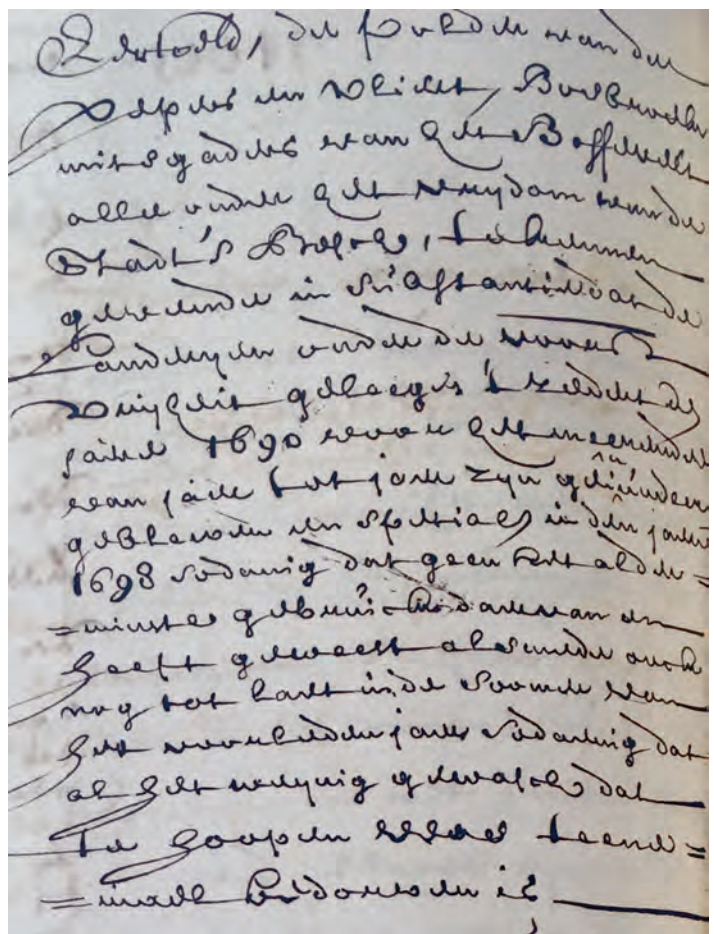 de polder van der
en Vliert,
mitsgaders van het Bossvelt
alle onder het vrydom van de
Stadt 's Bosch, te kennen
gevende in substantie dat de
Landeryen onder de voors
Vryheit gelegen 't zedert den
jaere 1690 voor het meerendeel
van jaer tot jaer zyn geinundeert
gebleven en spetiael in den jaere
1698 sodanig dat geen het alder=
=minste gebruick daer van en
heeft geweest alsmede ock
nog tot laet in de soomer van
het voorleden jaer sodanig dat
al het weynig gewasch dat
te hoopen was teene=
=mael bedorven is